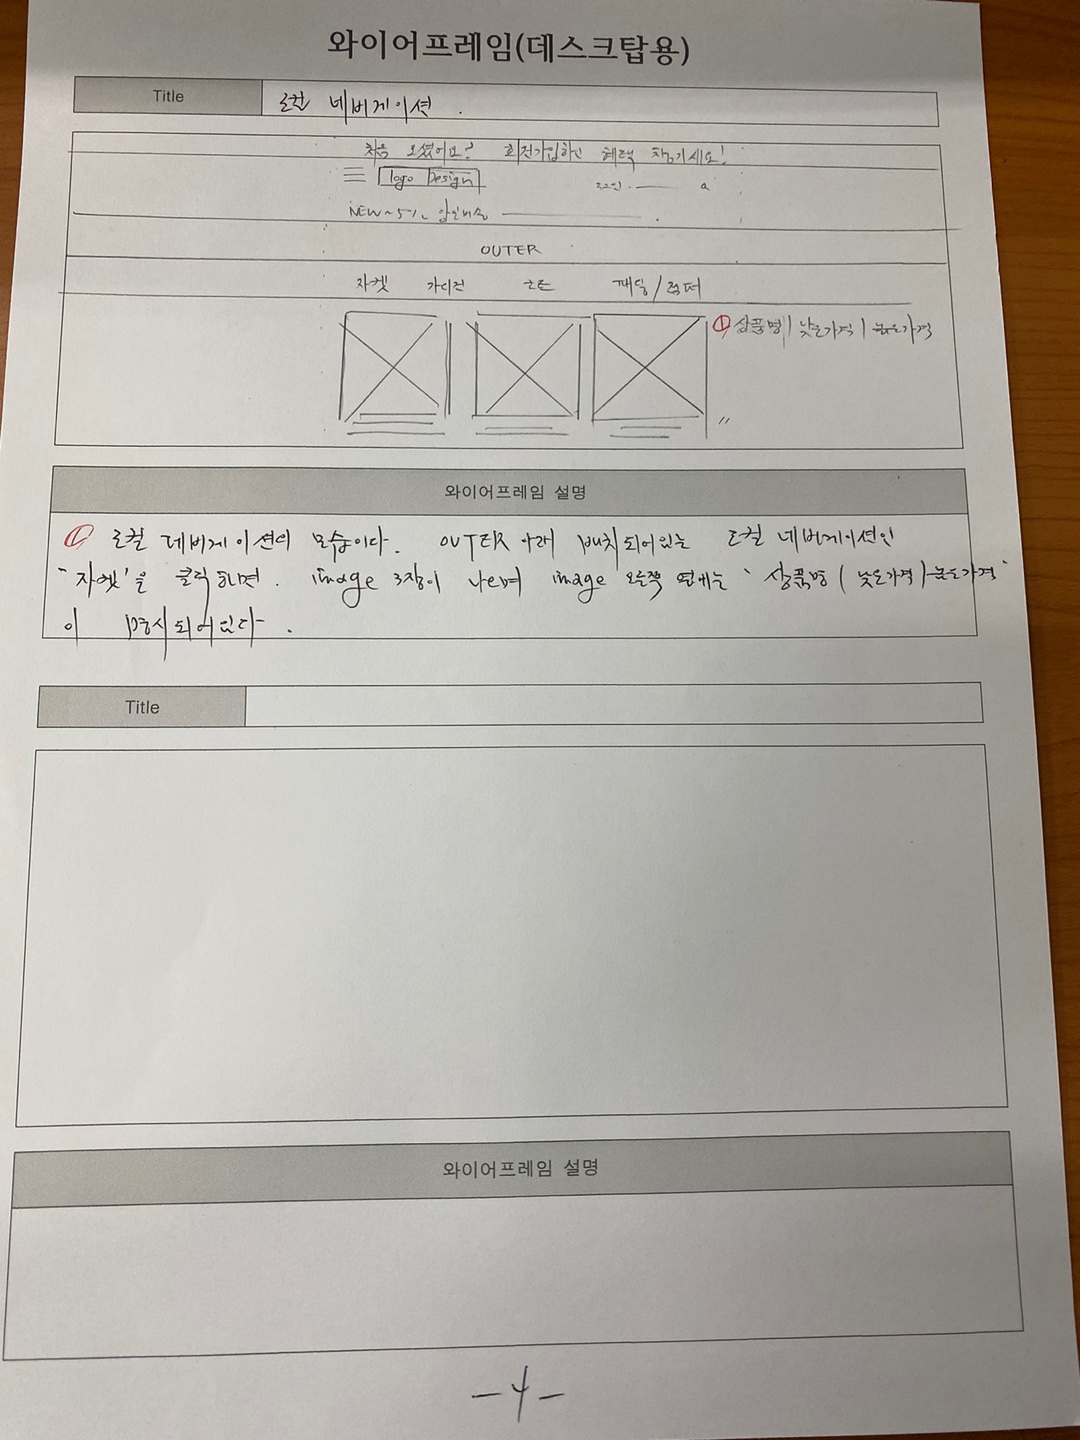 와이어프레임(데스크탑용)
Title
로컬 네비게이션.
처음 오셨어요? 회원가입하고 혜택 챙기세요!
logo Design
로그인
NEW~5%
OUTER
자켓 가디건 코트 패딩/점퍼
① 상품명| 낮은가격 | 높은가격
와이어프레임 설명
① 로컬 네비게이션의 모습이다. OUTER 아래 배치되어있는 로컬 네비게이션인
'자켓'을 클릭하면. image 3장이 나오며 image 오른쪽 옆에는 '상품명 | 낮은가격 | 높은가격'
이 표시되어있다.
Title
와이어프레임 설명
-4-